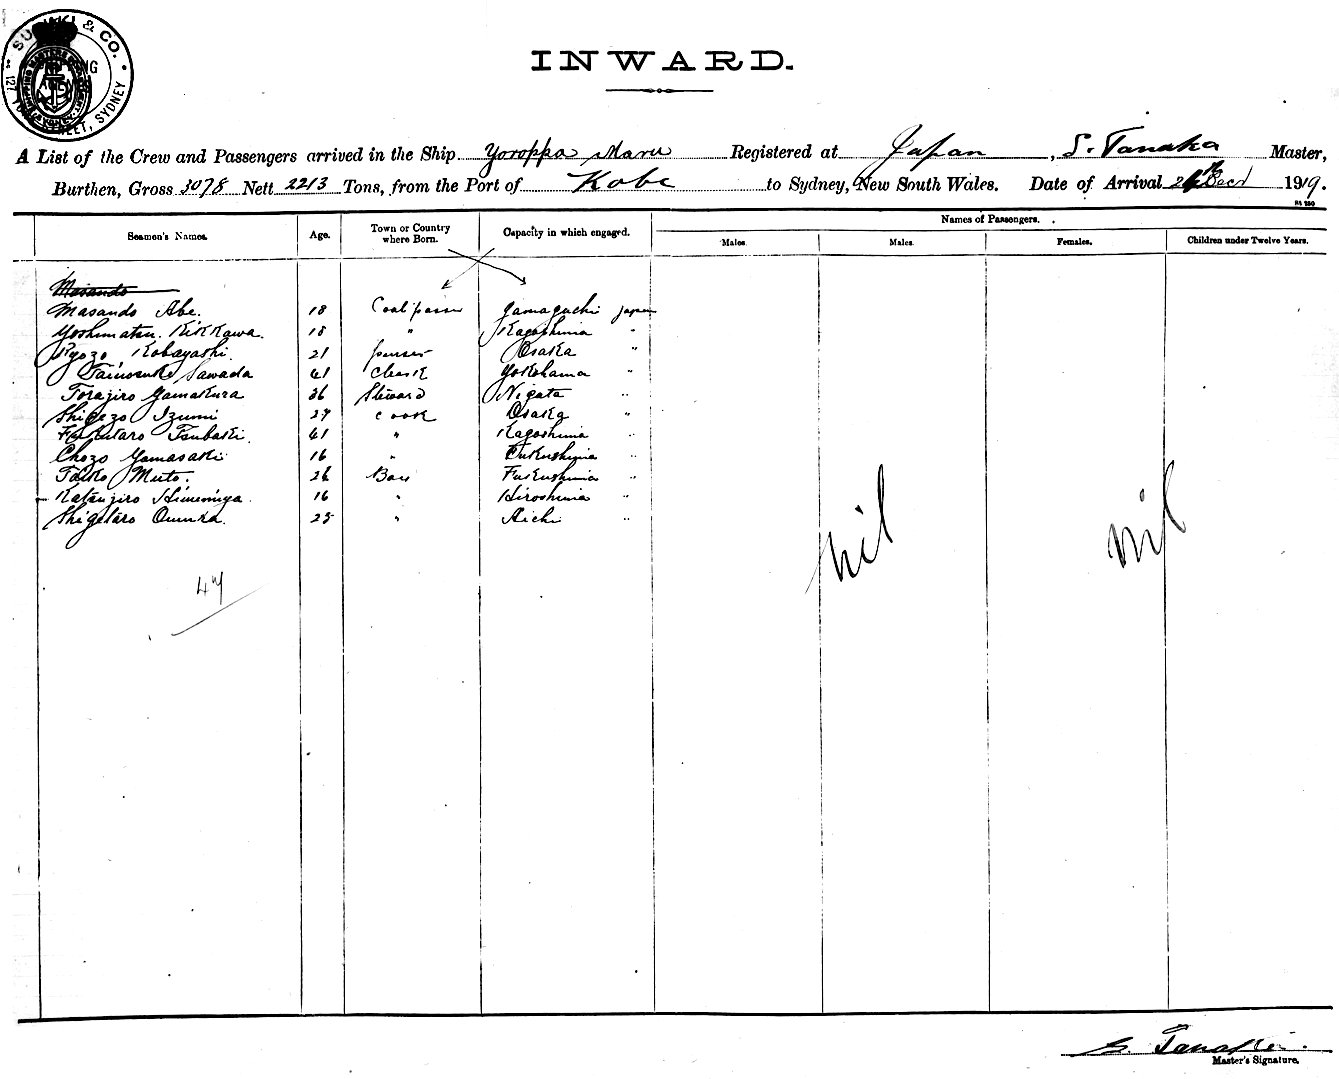 INWARD.
SU & CO.
127 STREET, SYDNEY
A List of the Crew and Passengers arrived in the Ship Yoroppa Maru Registered at Japan, S. Tanaka Master,
Burthen, Gross 3078 Nett 2213 Tons, from the Port of Kobe to Sydney, New South Wales. Date of Arrival Decr 1919.
Names of Passengers.
Seamen's Names. Age. Town or Country where Born. Capacity in which engaged. Males. Males. Females. Children under Twelve Years.
Masando
Masando Abe. 18 Coal passer Yamaguchi Japan
Yoshimatsu Kikkawa. 18 " Kagoshima "
Ryozo Kobayashi. 21 purser Osaka "
Sawada 41 Clerk Yokohama "
Torajiro Yamakura 36 Steward Nigata "
Shigezo Izumi 27 Cook Osaka "
Fukutaro Tsubaki. 41 " Kagoshima "
Chozo Yamasaki 16 " Fukushima "
Muto. 26 Boy Fukushima "
Katsujiro 16 " Hiroshima "
Shigetaro 25 " Aichi "
nil nil
47
S. Tanaka.
Master's Signature.